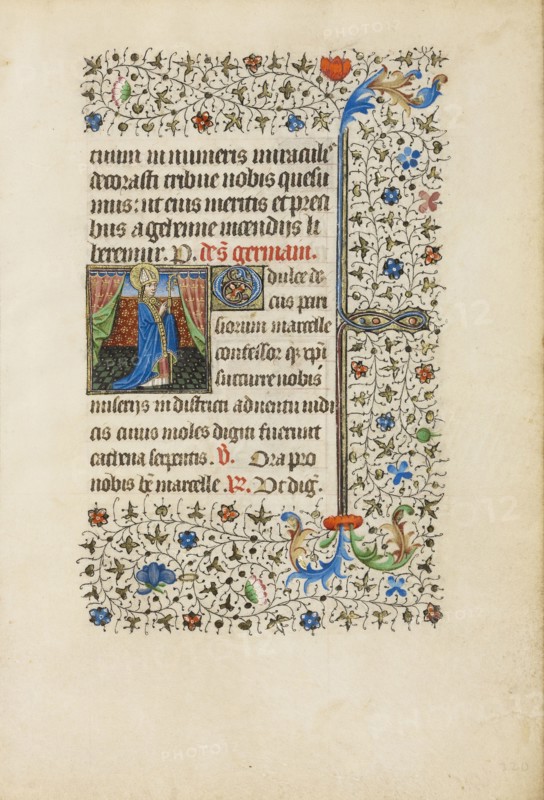 tuum in numeris miracul'
decorasti tribue nobis quesu
mus: ut eius meritis et preci
bus a gehenne incendijs li
beremur. P. de s̃ germain.
O dulce de
cus pari
siorum marcelle
confessor qz xp̃i
succurre nobis
miseris in districti aduentu iudi
cis cuius moles digiti fuerunt
cathena serpentis. V̄. Ora pro
nobis bẽ marcelle. R̃. Vt dig̃.